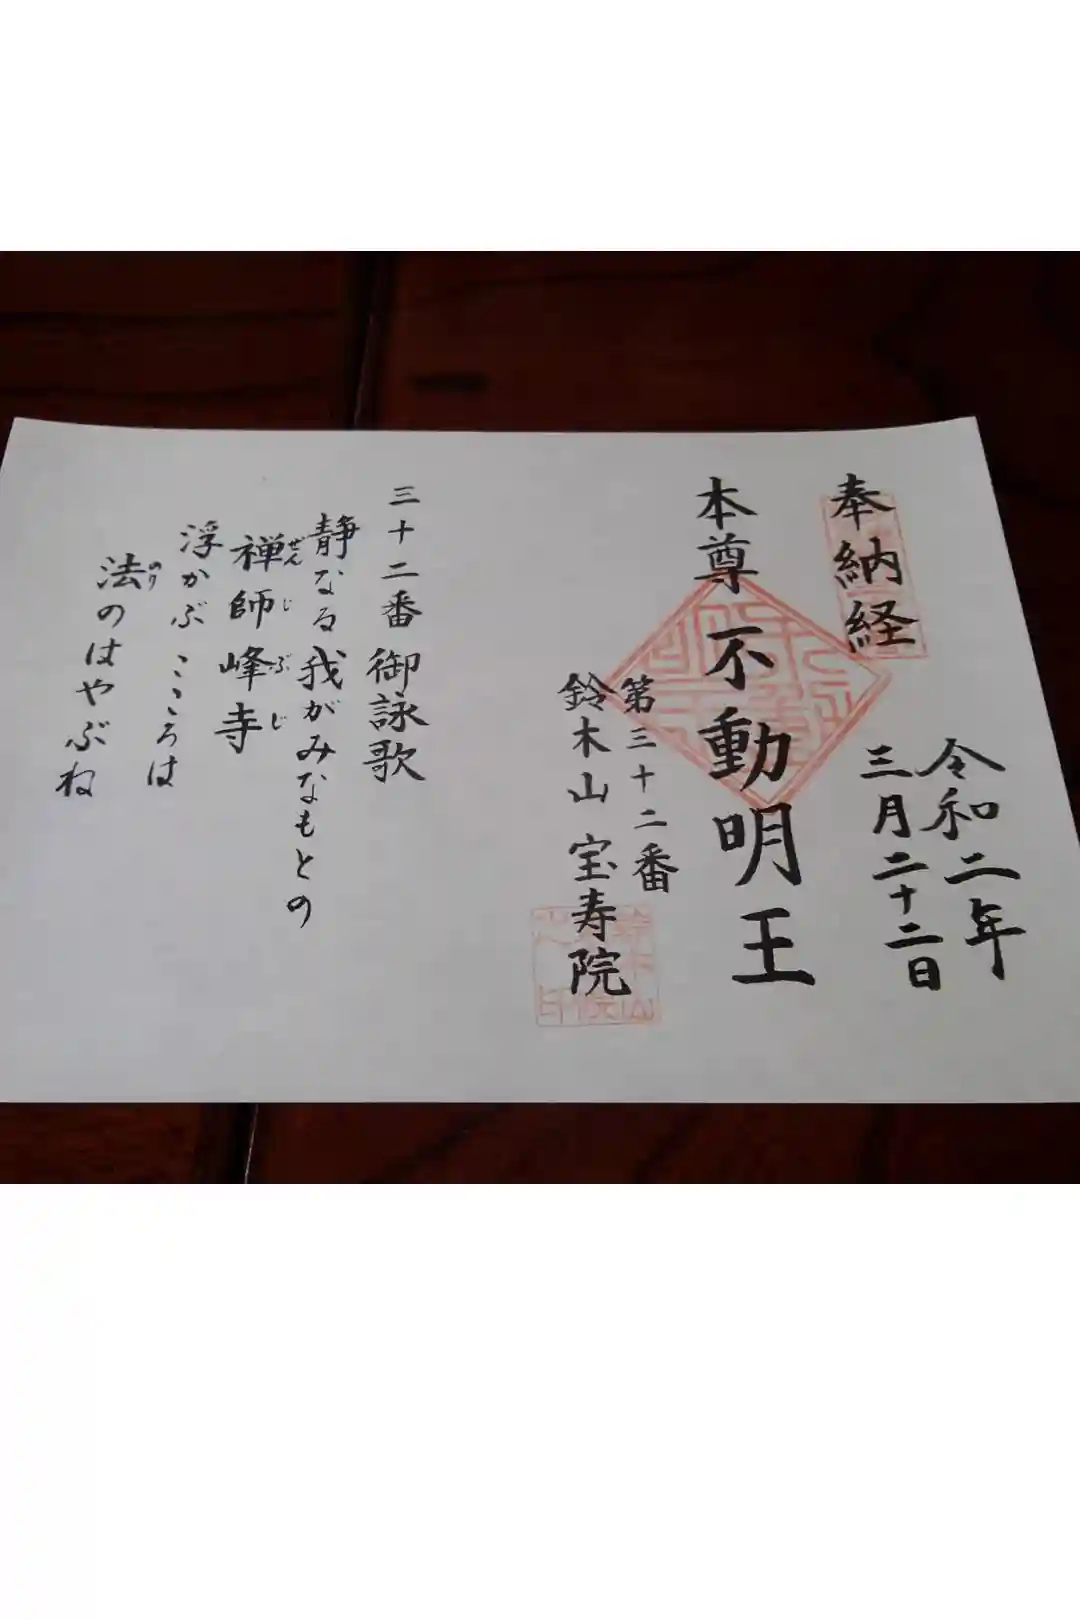 奉納経
令和二年
三月二十二日
本尊 不動明王
第三十二番
鈴木山 宝寿院
三十二番 御詠歌
静なる我がみなもとの
禅師峰寺
ぜんじぶじ
浮かぶこゝろは
法のはやぶね
のり